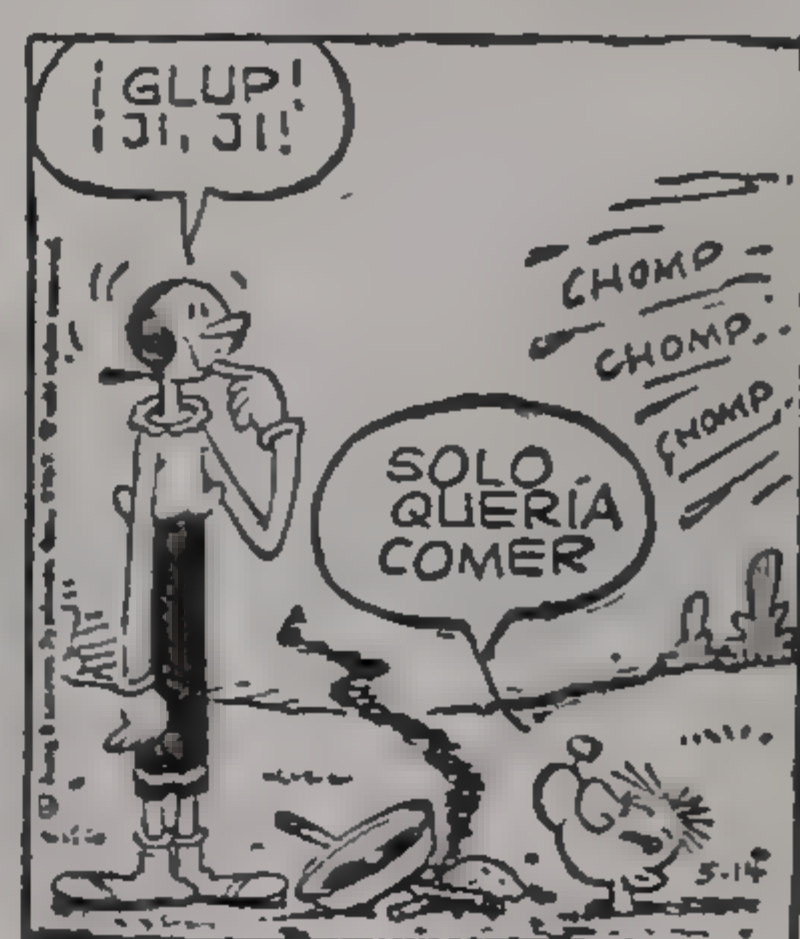 ¡GLUP!
¡JI, JI!
CHOMP
CHOMP
CHOMP
SOLO
QUERÍA
COMER
5-14